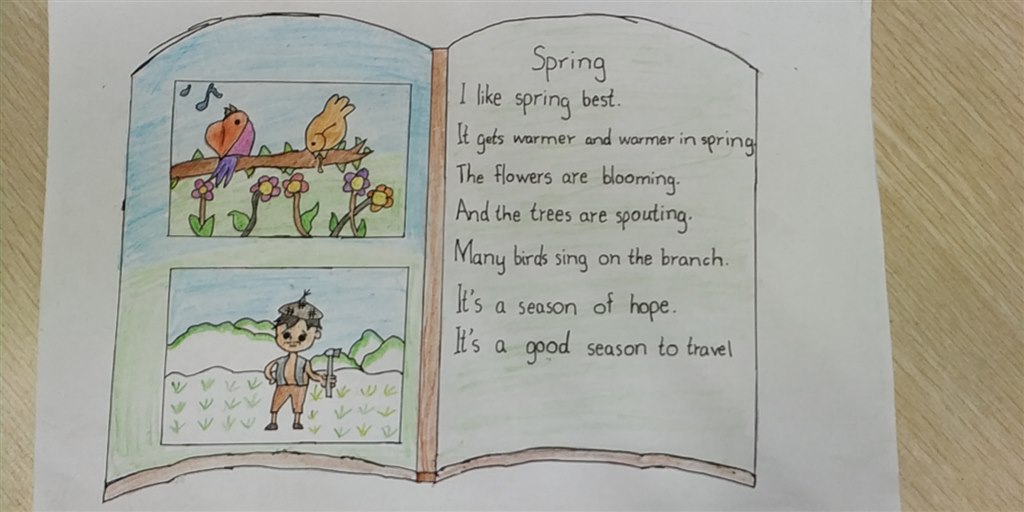 Spring
I like spring best.
It gets warmer and warmer in spring.
The flowers are blooming.
And the trees are spouting.
Many birds sing on the branch.
It's a season of hope.
It's a good season to travel